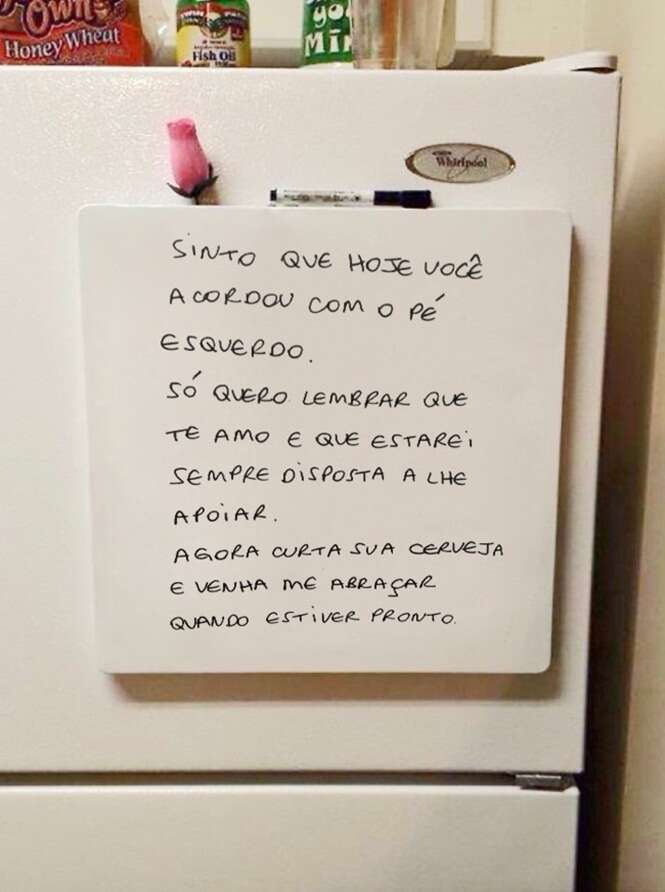 Own
Honey Wheat
Fish Oil
Whirlpool
SINTO QUE HOJE VOCÊ
ACORDOU COM O PÉ
ESQUERDO.
SÓ QUERO LEMBRAR QUE
TE AMO E QUE ESTAREI
SEMPRE DISPOSTA A LHE
APOIAR.
AGORA CURTA SUA CERVEJA
E VENHA ME ABRAÇAR
QUANDO ESTIVER PRONTO.